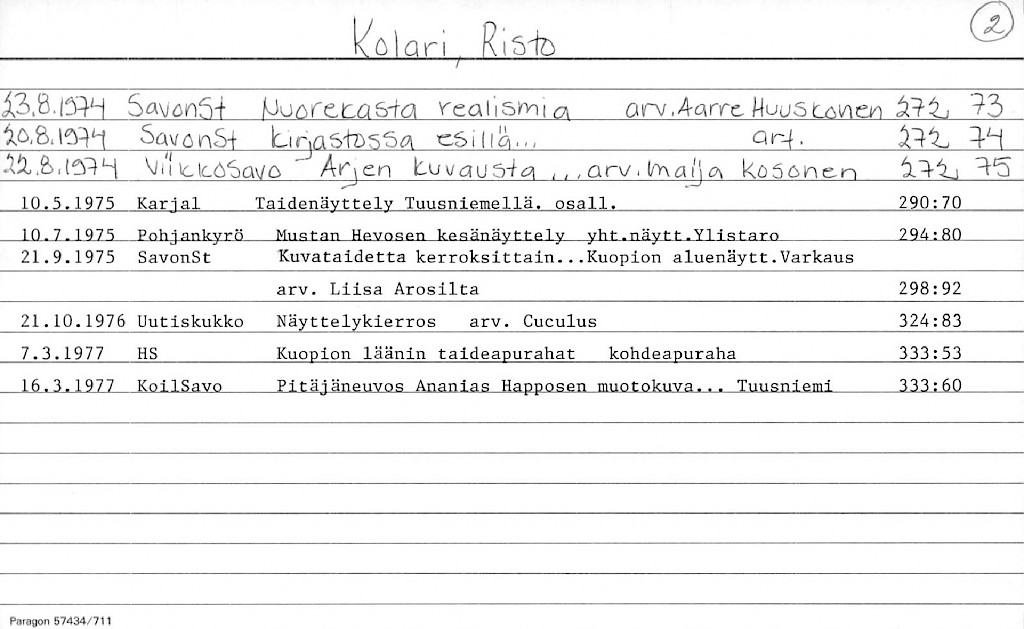 Kolari, Risto
2
23.8.1974 SavonSt Nuorekasta realismia arv. Aarre Huuskonen 272, 73
20.8.1974 SavonSt kirjastossa esillä... art. 272 74
22.8.1974 ViikkoSavo Arjen kuvausta ...arv. Maija Kosonen 272, 75
10.5.1975 Karjal Taidenäyttely Tuusniemellä. osall. 290:70
10.7.1975 Pohjankyrö Mustan Hevosen kesänäyttely yht.näytt.Ylistaro 294:80
21.9.1975 SavonSt Kuvataidetta kerroksittain...Kuopion aluenäytt.Varkaus
arv. Liisa Arosilta 298:92
21.10.1976 Uutiskukko Näyttelykierros arv. Cuculus 324:83
7.3.1977 HS Kuopion läänin taideapurahat kohdeapuraha 333:53
16.3.1977 KoilSavo Pitäjäneuvos Ananias Happosen muotokuva... Tuusniemi 333:60
Paragon 57434/711